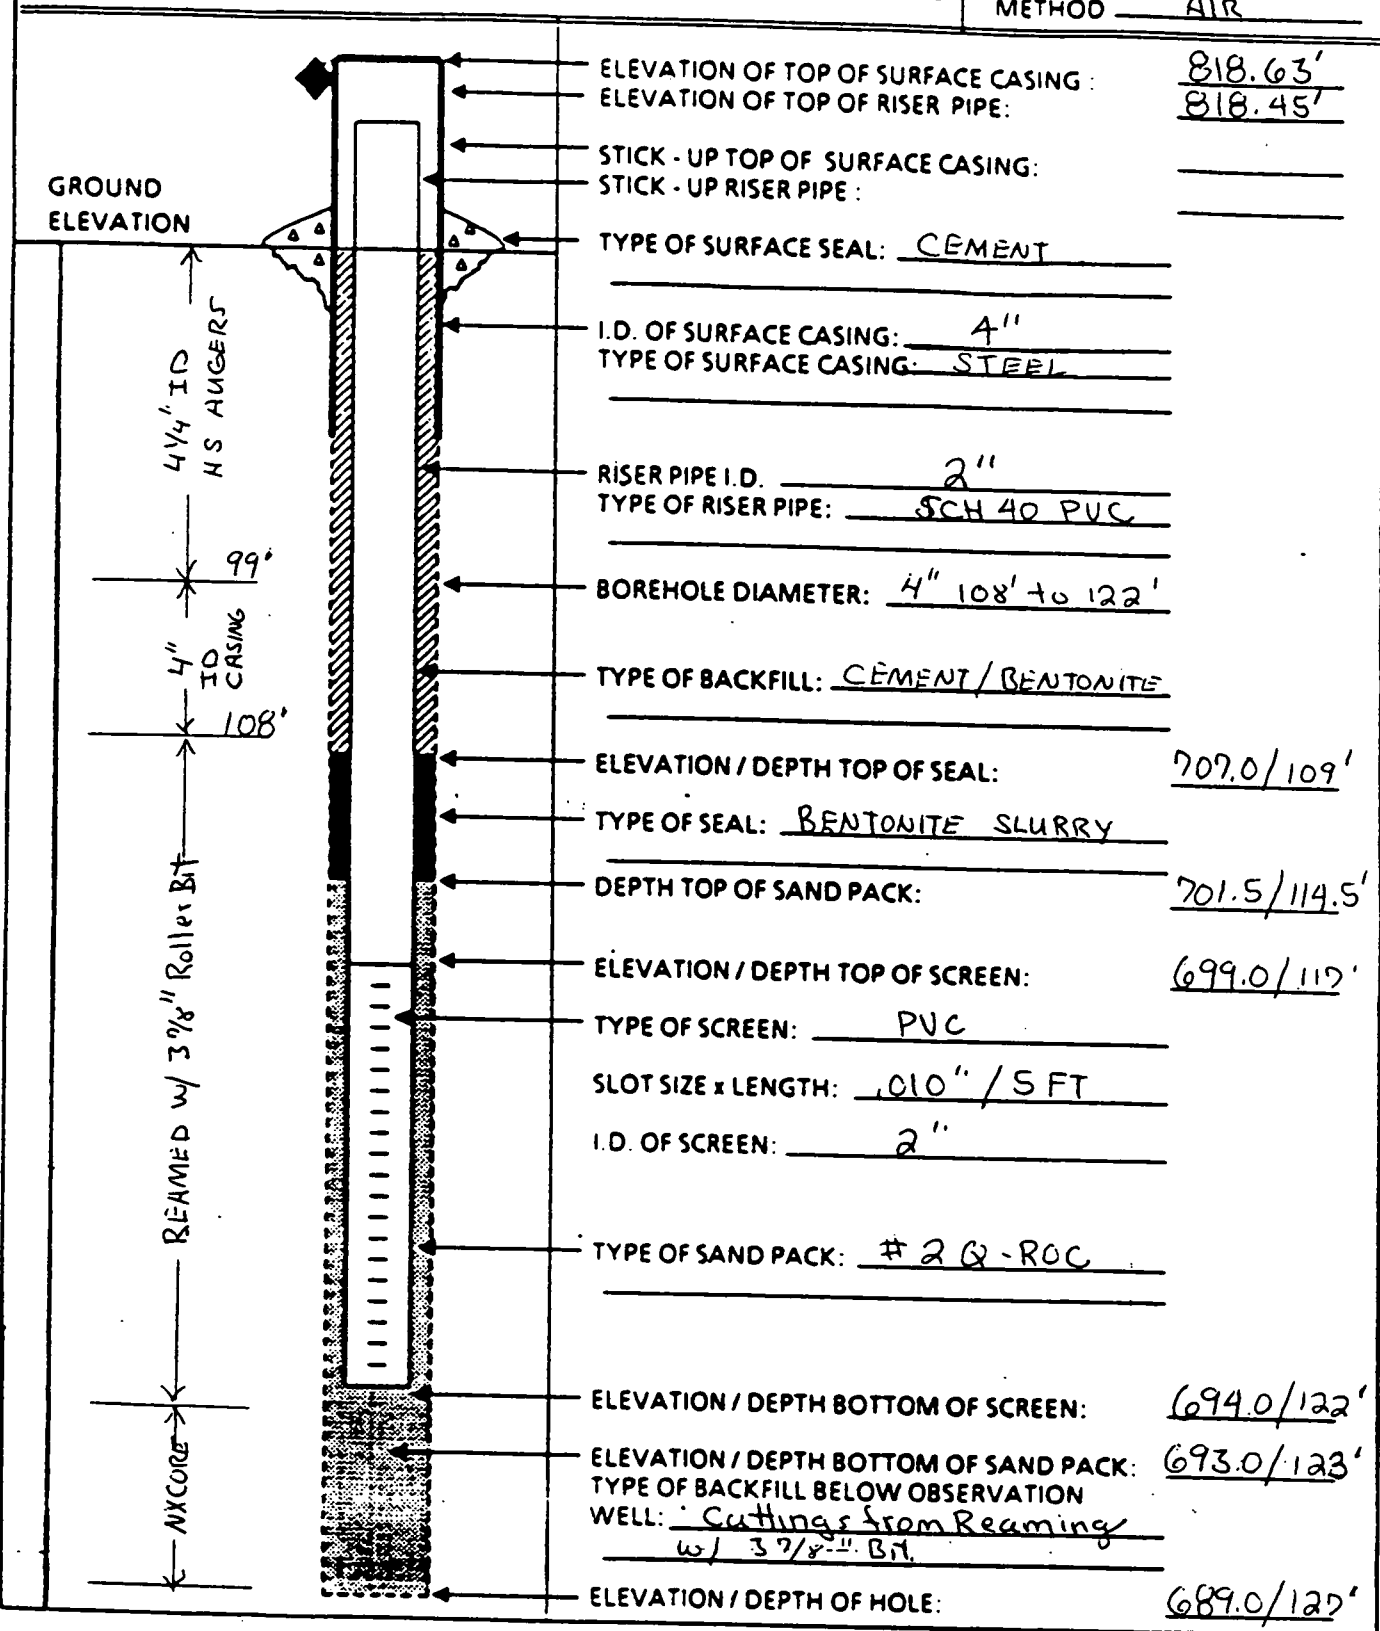 METHOD AIR
ELEVATION OF TOP OF SURFACE CASING : 818.63'
ELEVATION OF TOP OF RISER PIPE: 818.45'
STICK - UP TOP OF SURFACE CASING:
STICK - UP RISER PIPE :
GROUND
ELEVATION
TYPE OF SURFACE SEAL: CEMENT
4 1/4" ID
HS AUGERS
I.D. OF SURFACE CASING: 4"
TYPE OF SURFACE CASING: STEEL
RISER PIPE I.D. 2"
TYPE OF RISER PIPE: SCH 40 PVC
99'
BOREHOLE DIAMETER: 4" 108' to 122'
4"
ID
CASING
TYPE OF BACKFILL: CEMENT/BENTONITE
108'
ELEVATION / DEPTH TOP OF SEAL: 707.0/109'
TYPE OF SEAL: BENTONITE SLURRY
DEPTH TOP OF SAND PACK: 701.5/114.5'
REAMED w/ 3 7/8" Roller Bit
ELEVATION / DEPTH TOP OF SCREEN: 699.0/117'
TYPE OF SCREEN: PVC
SLOT SIZE x LENGTH: .010" / 5 FT
I.D. OF SCREEN: 2"
TYPE OF SAND PACK: # 2 Q-ROC
ELEVATION / DEPTH BOTTOM OF SCREEN: 694.0/122'
NXCORE
ELEVATION / DEPTH BOTTOM OF SAND PACK: 693.0/123'
TYPE OF BACKFILL BELOW OBSERVATION
WELL: Cuttings from Reaming
w/ 3 7/8" Bit.
ELEVATION / DEPTH OF HOLE: 689.0/127'